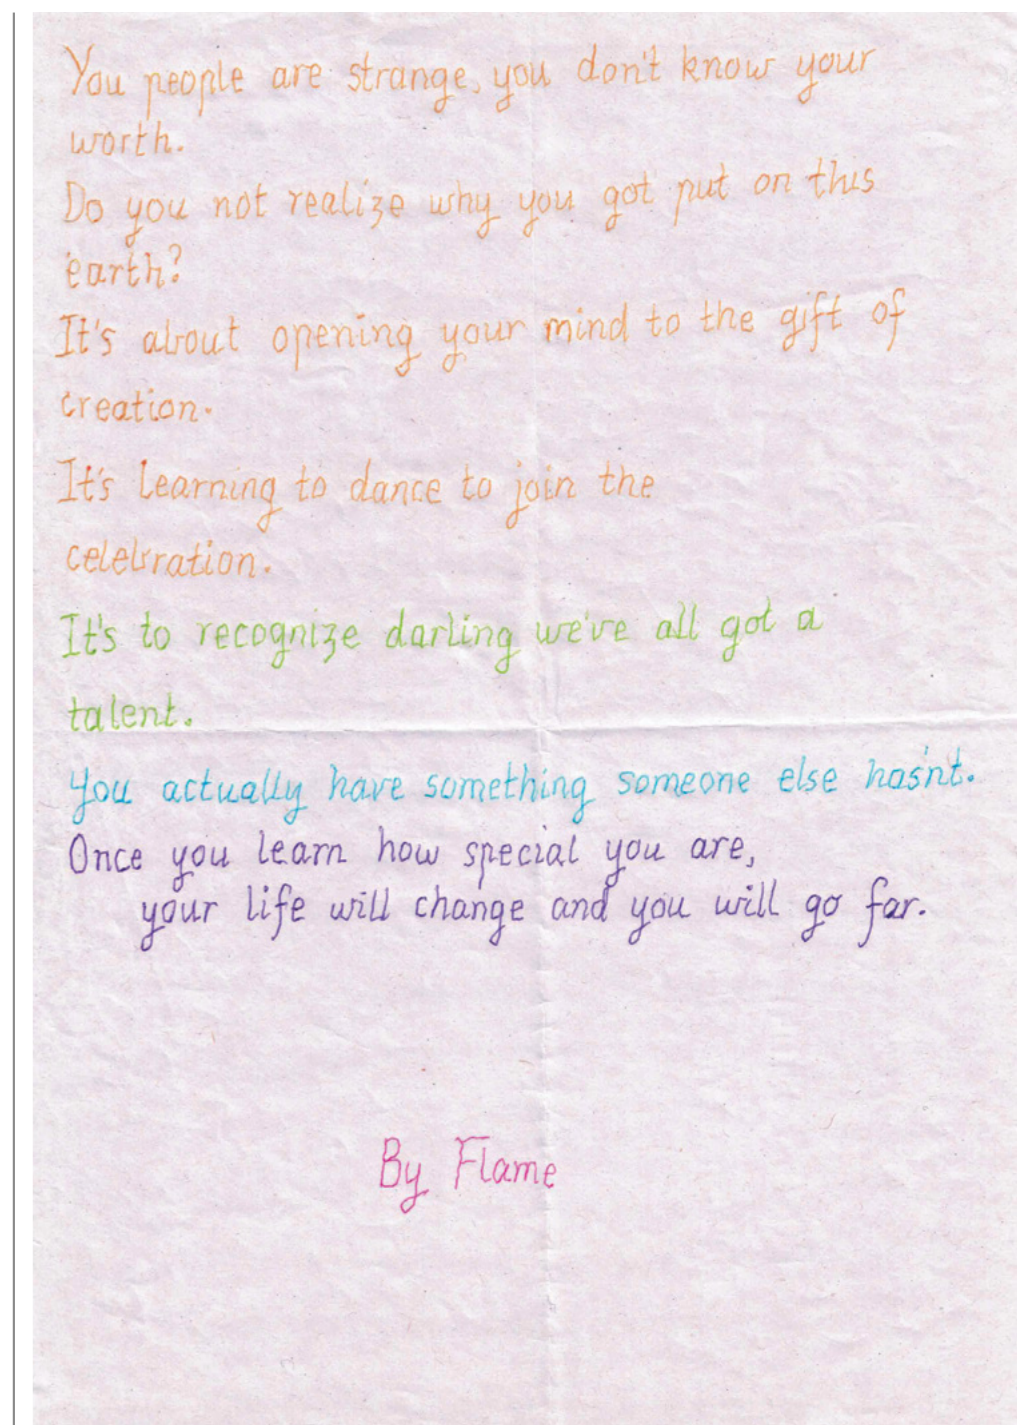 You people are strange, you don't know your
worth.
Do you not realize why you got put on this
earth?
It's about opening your mind to the gift of
creation.
It's learning to dance to join the
celebration.
It's to recognize darling we've all got a
talent.
You actually have something someone else has'nt.
Once you learn how special you are,
your life will change and you will go far.
By Flame